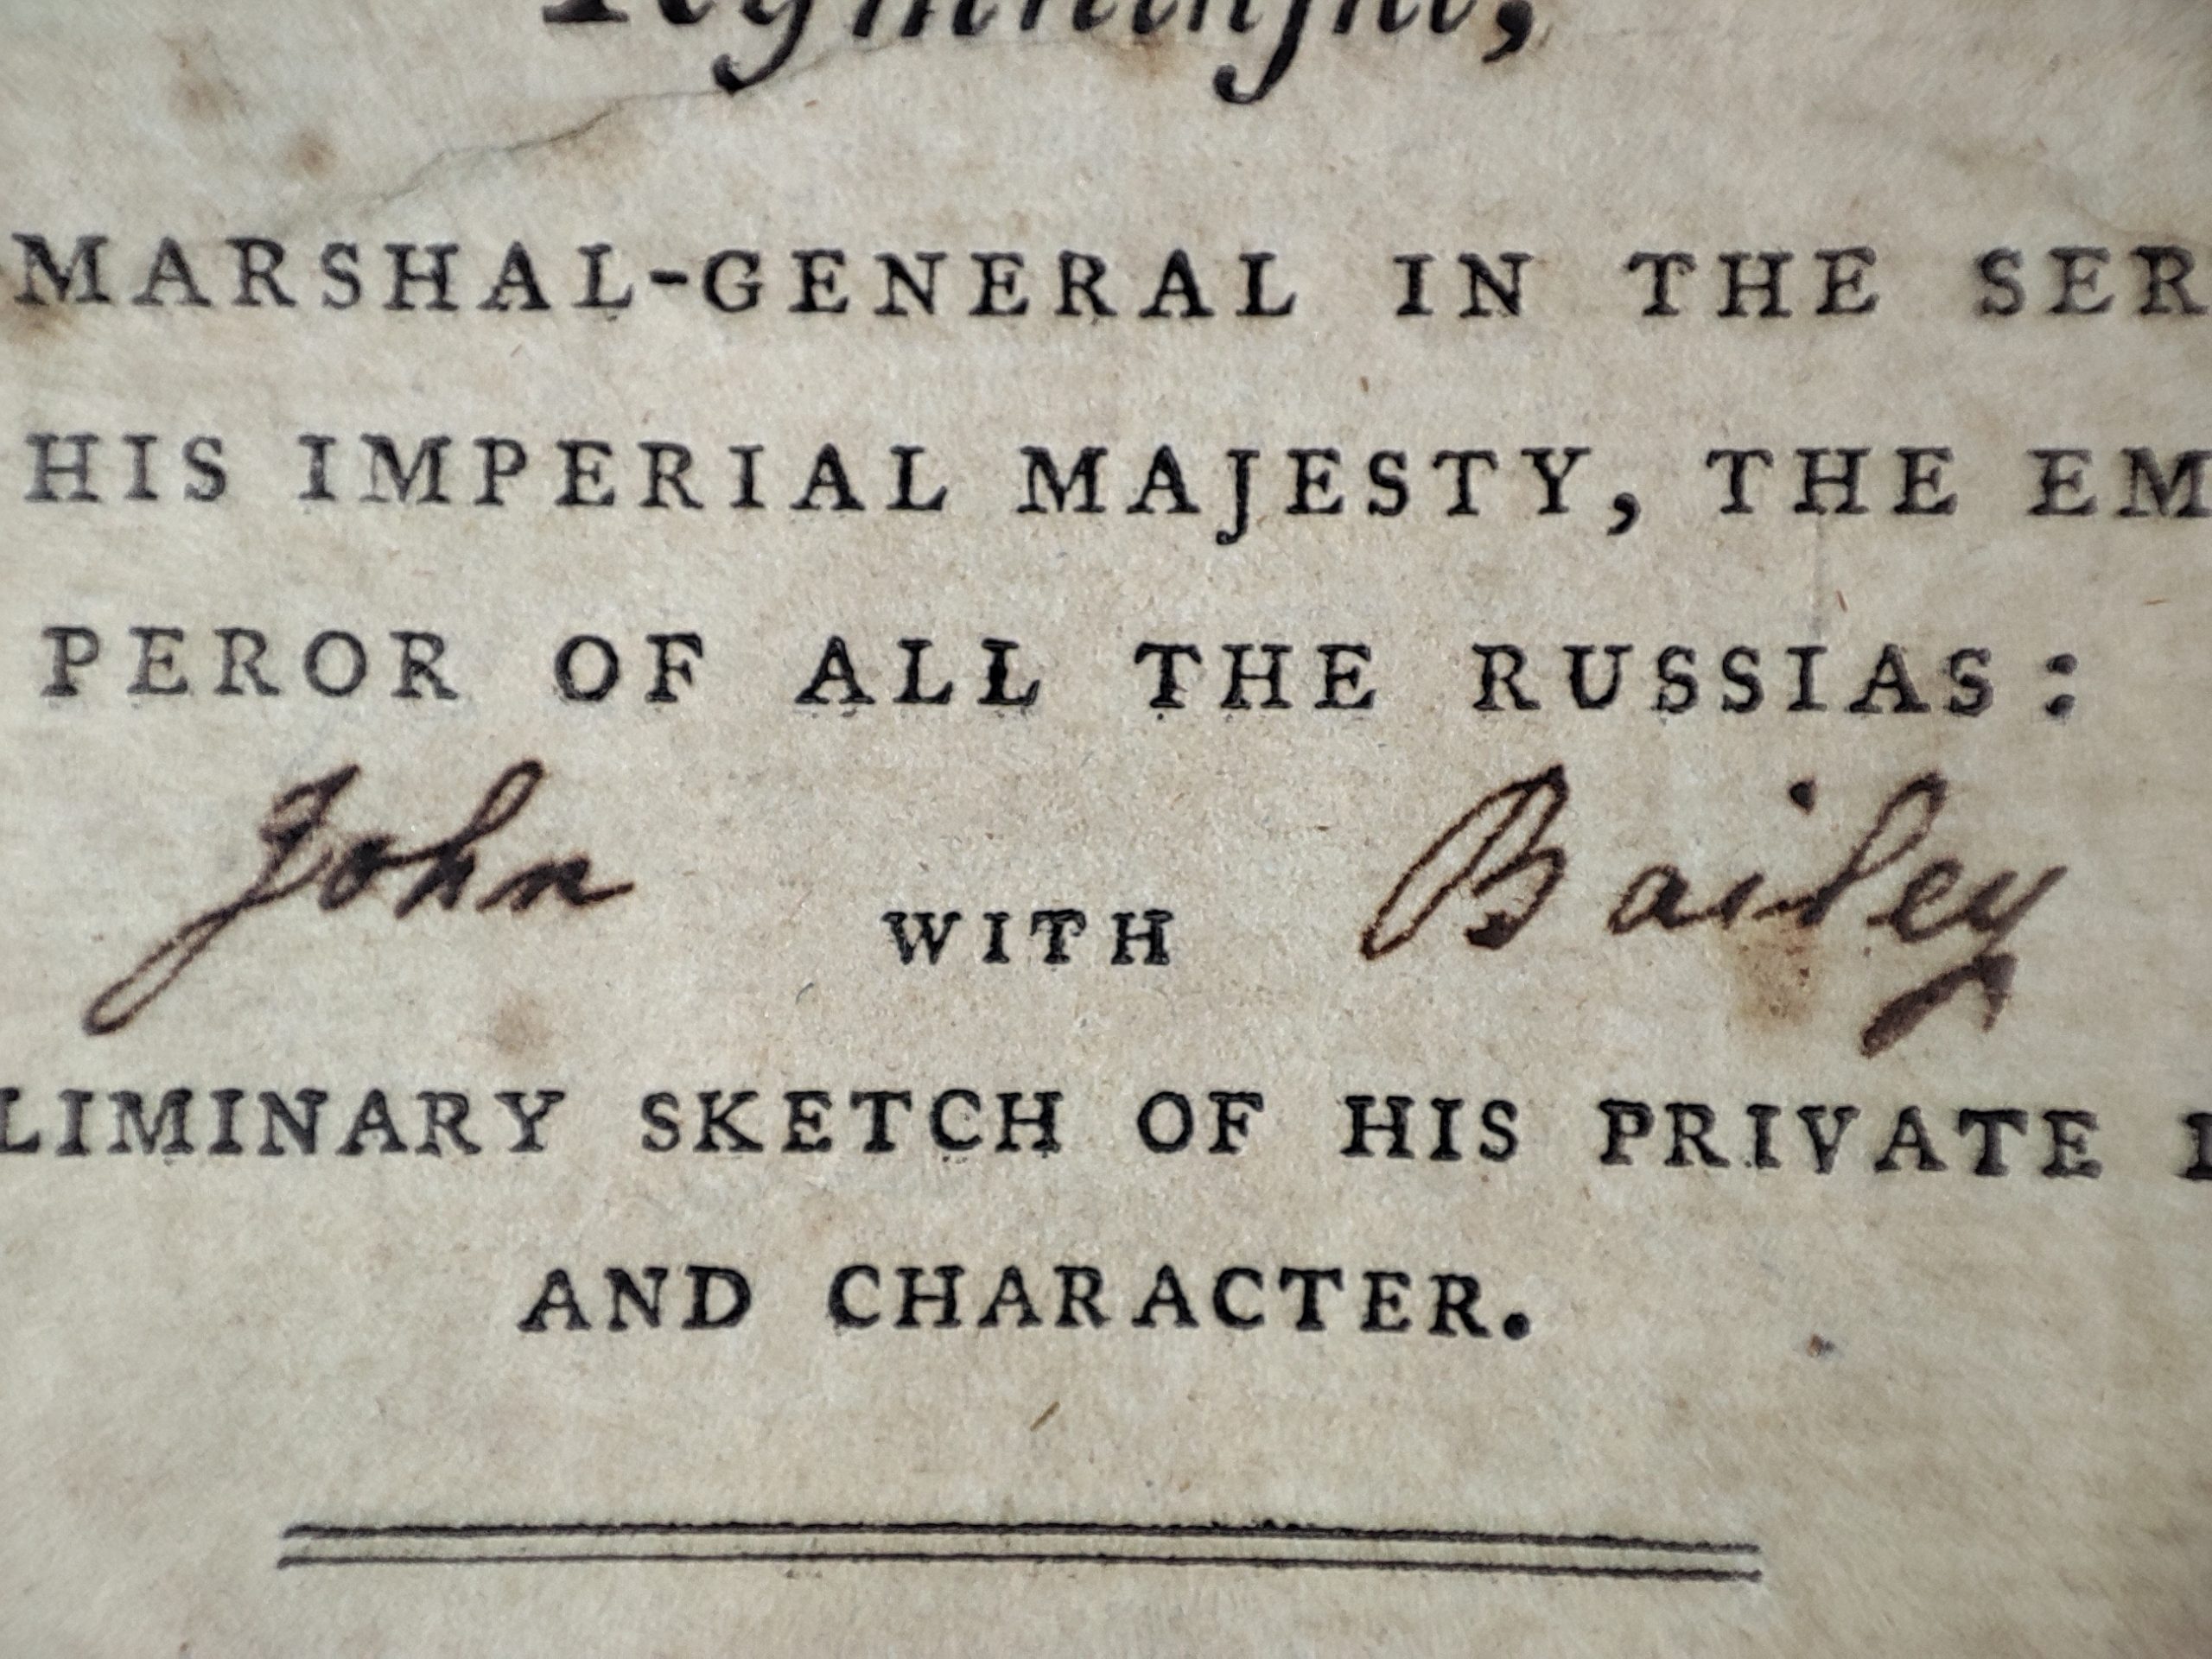 MARSHAL-GENERAL IN THE SER
HIS IMPERIAL MAJESTY, THE EM
PEROR OF ALL THE RUSSIAS:
John WITH Bailey
LIMINARY SKETCH OF HIS PRIVATE
AND CHARACTER.